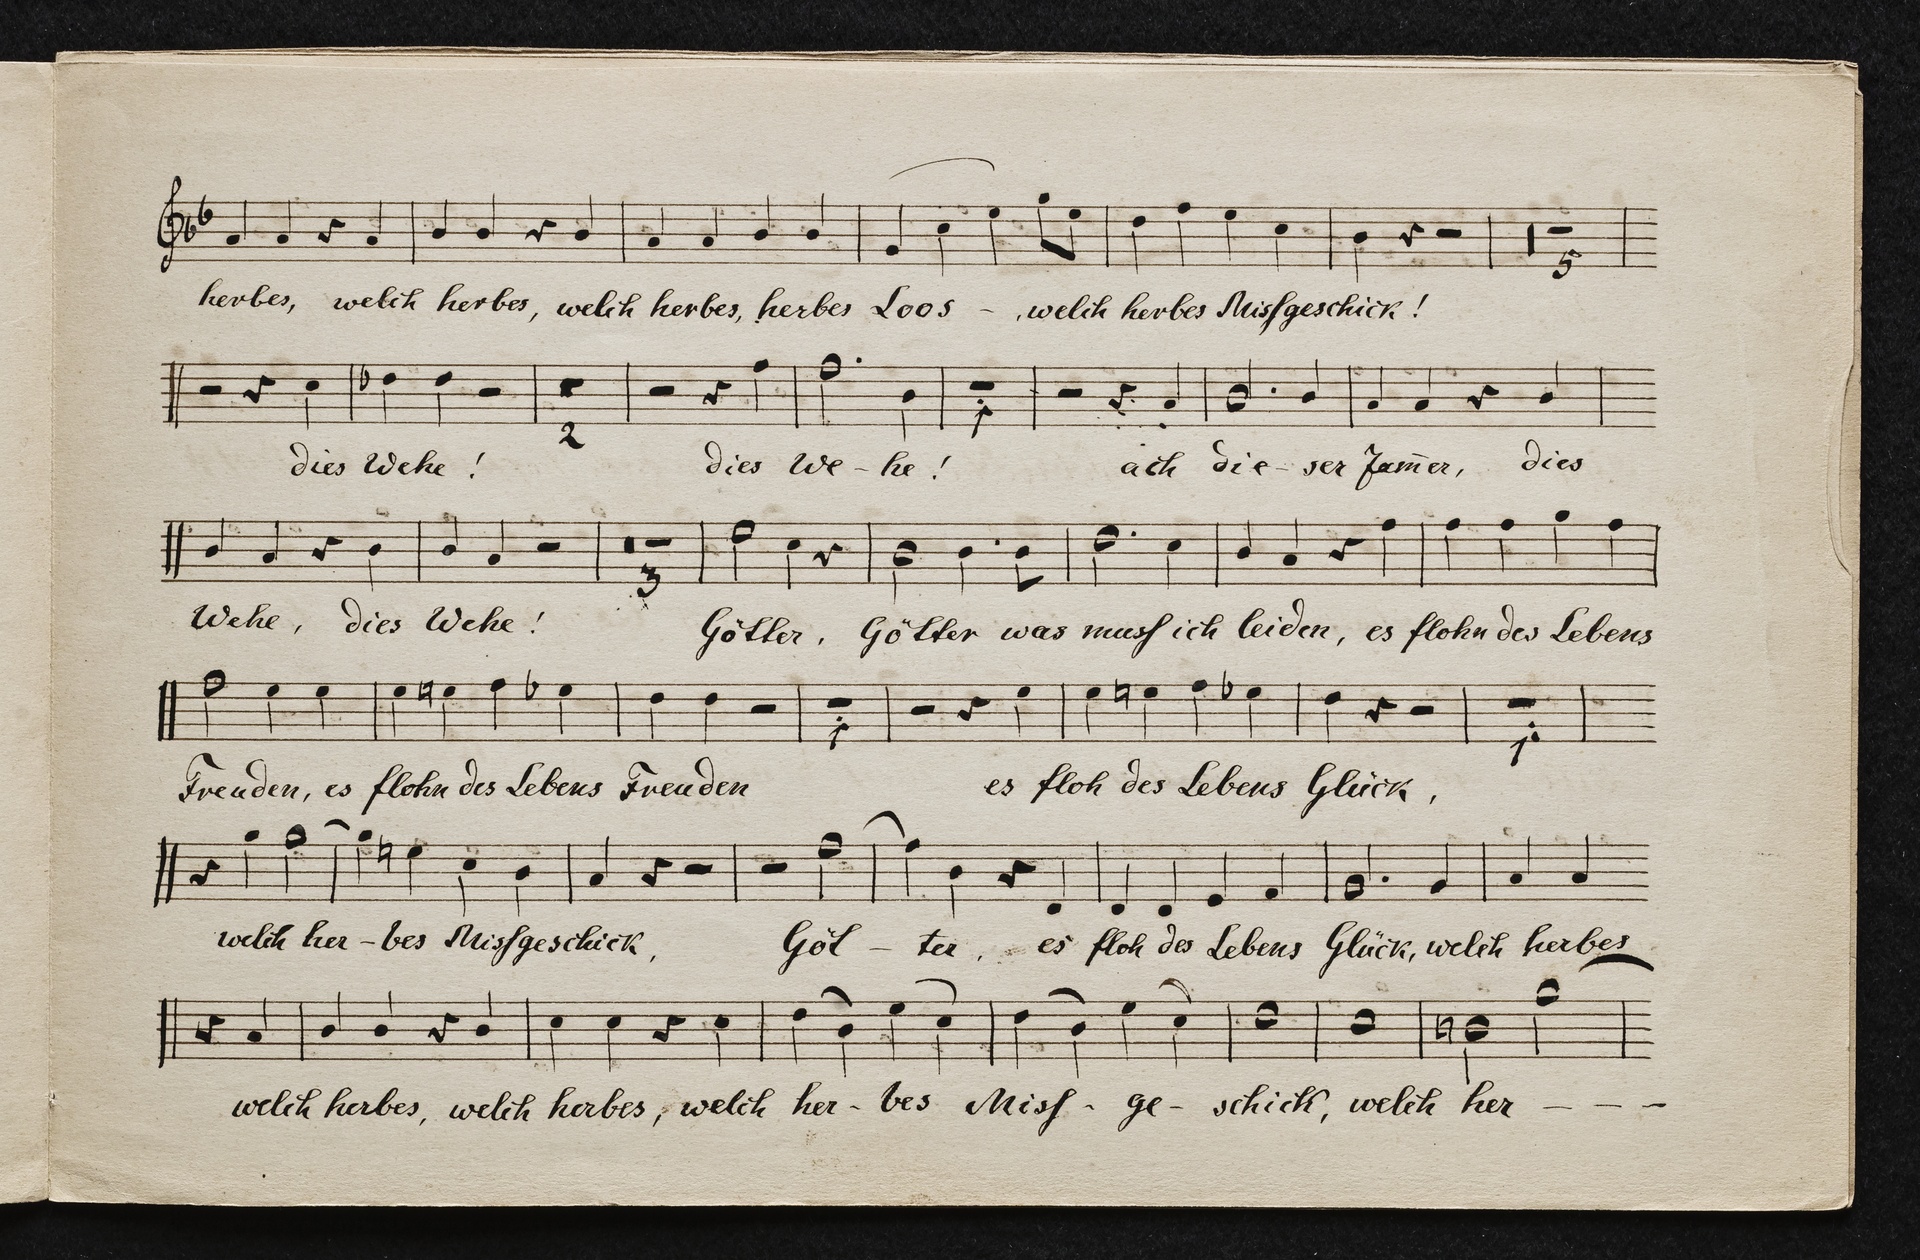 herbes, welch herbes, welch herbes, herbes Loos - , welch herbes Missgeschick !
5
2
1
dies Wehe ! dies We - he ! ach die - ser Jam̄er, dies
3
Wehe, dies Wehe ! Götter, Götter was muss ich leiden, es flohn des Lebens
1 1
Freuden, es flohn des Lebens Freuden es floh des Lebens Glück,
welch her - bes Missgeschick, Göt - ter, es floh des Lebens Glück, welch herbes
welch herbes, welch herbes, welch her - bes Miss - ge - schick, welch her - - -